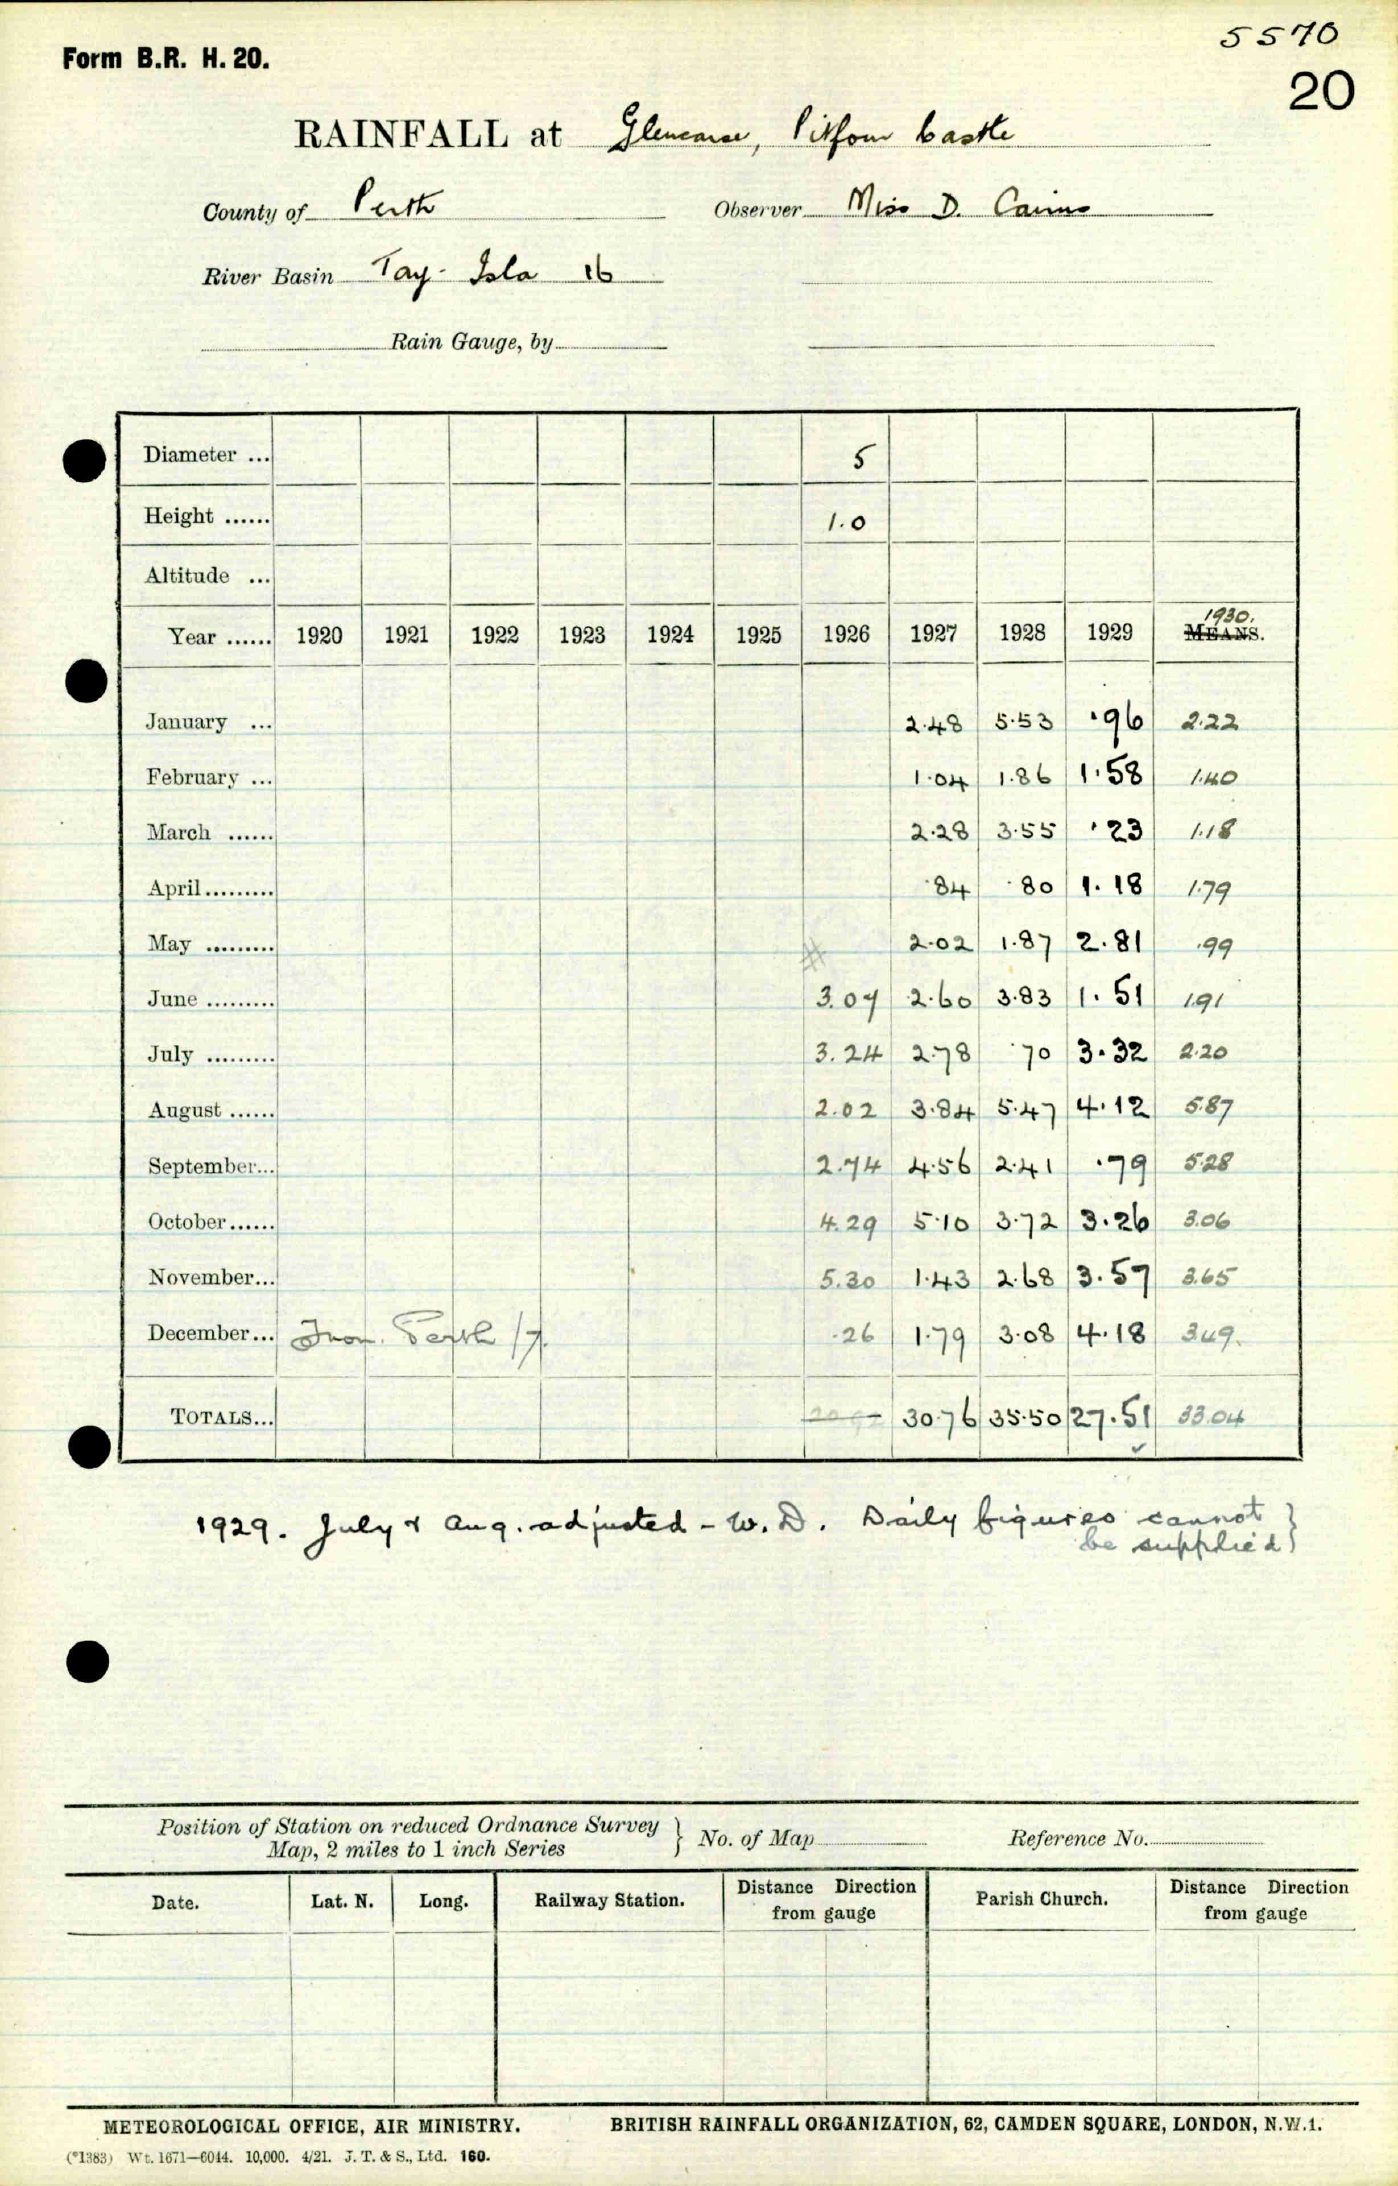 5570
Form B.R. H. 20.
20
RAINFALL at Glencarse, Pitfour Castle
County of Perth Observer Miss D. Cairns
River Basin Tay-Isla 16
Rain Gauge, by
Diameter ... 5
Height ...... 1.0
Altitude ...
1930.
Year ...... 1920 1921 1922 1923 1924 1925 1926 1927 1928 1929 MEANS.
January ... 2.48 5.53 .96 2.22
February ... 1.04 1.86 1.58 1.40
March ...... 2.28 3.55 .23 1.18
April ......... .84 .80 1.18 1.79
May ......... 2.02 1.87 2.81 .99
June ......... 3.07 2.60 3.83 1.51 1.91
July ......... 3.24 2.78 .70 3.32 2.20
August ...... 2.02 3.84 5.47 4.12 5.87
September... 2.74 4.56 2.41 .79 5.28
October ...... 4.29 5.10 3.72 3.26 3.06
November... 5.30 1.43 2.68 3.57 3.65
December... From Perth /7. .26 1.79 3.08 4.18 3.49.
TOTALS... 20.92 30.76 35.50 27.51 33.04
1929. July & Aug. adjusted - W.D. Daily figures cannot
be supplied
Position of Station on reduced Ordnance Survey
Map, 2 miles to 1 inch Series
No. of Map Reference No.
Date. Lat. N. Long. Railway Station. Distance Direction from gauge Parish Church. Distance Direction from gauge
METEOROLOGICAL OFFICE, AIR MINISTRY. BRITISH RAINFALL ORGANIZATION, 62, CAMDEN SQUARE, LONDON, N.W.1.
(*1383) Wt. 1671—6044. 10,000. 4/21. J. T. & S., Ltd. 160.